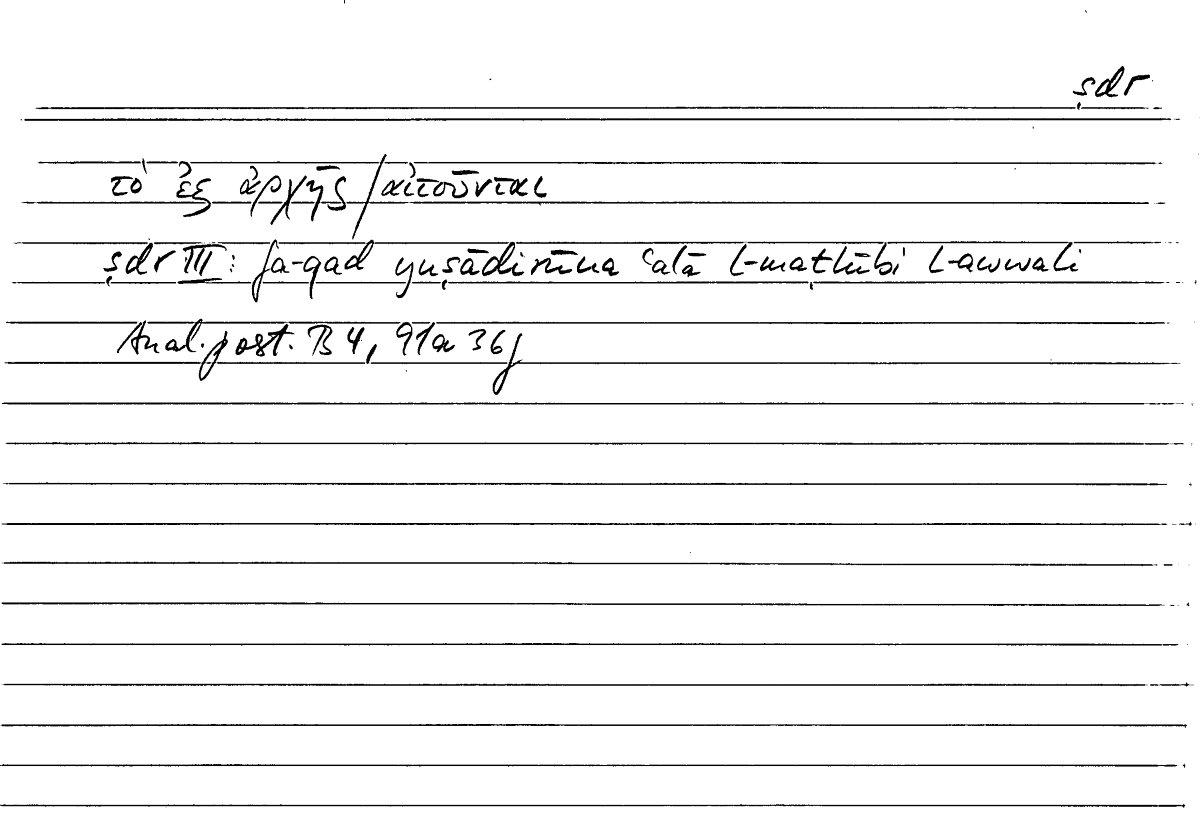 ṣdr
τὸ ἐξ ἀρχῆς / αἰτοῦνται
ṣdr III: fa-qad yuṣādirūna ʿalā l-maṭlūbi l-awwali
Anal. post. B 4, 91a 36f